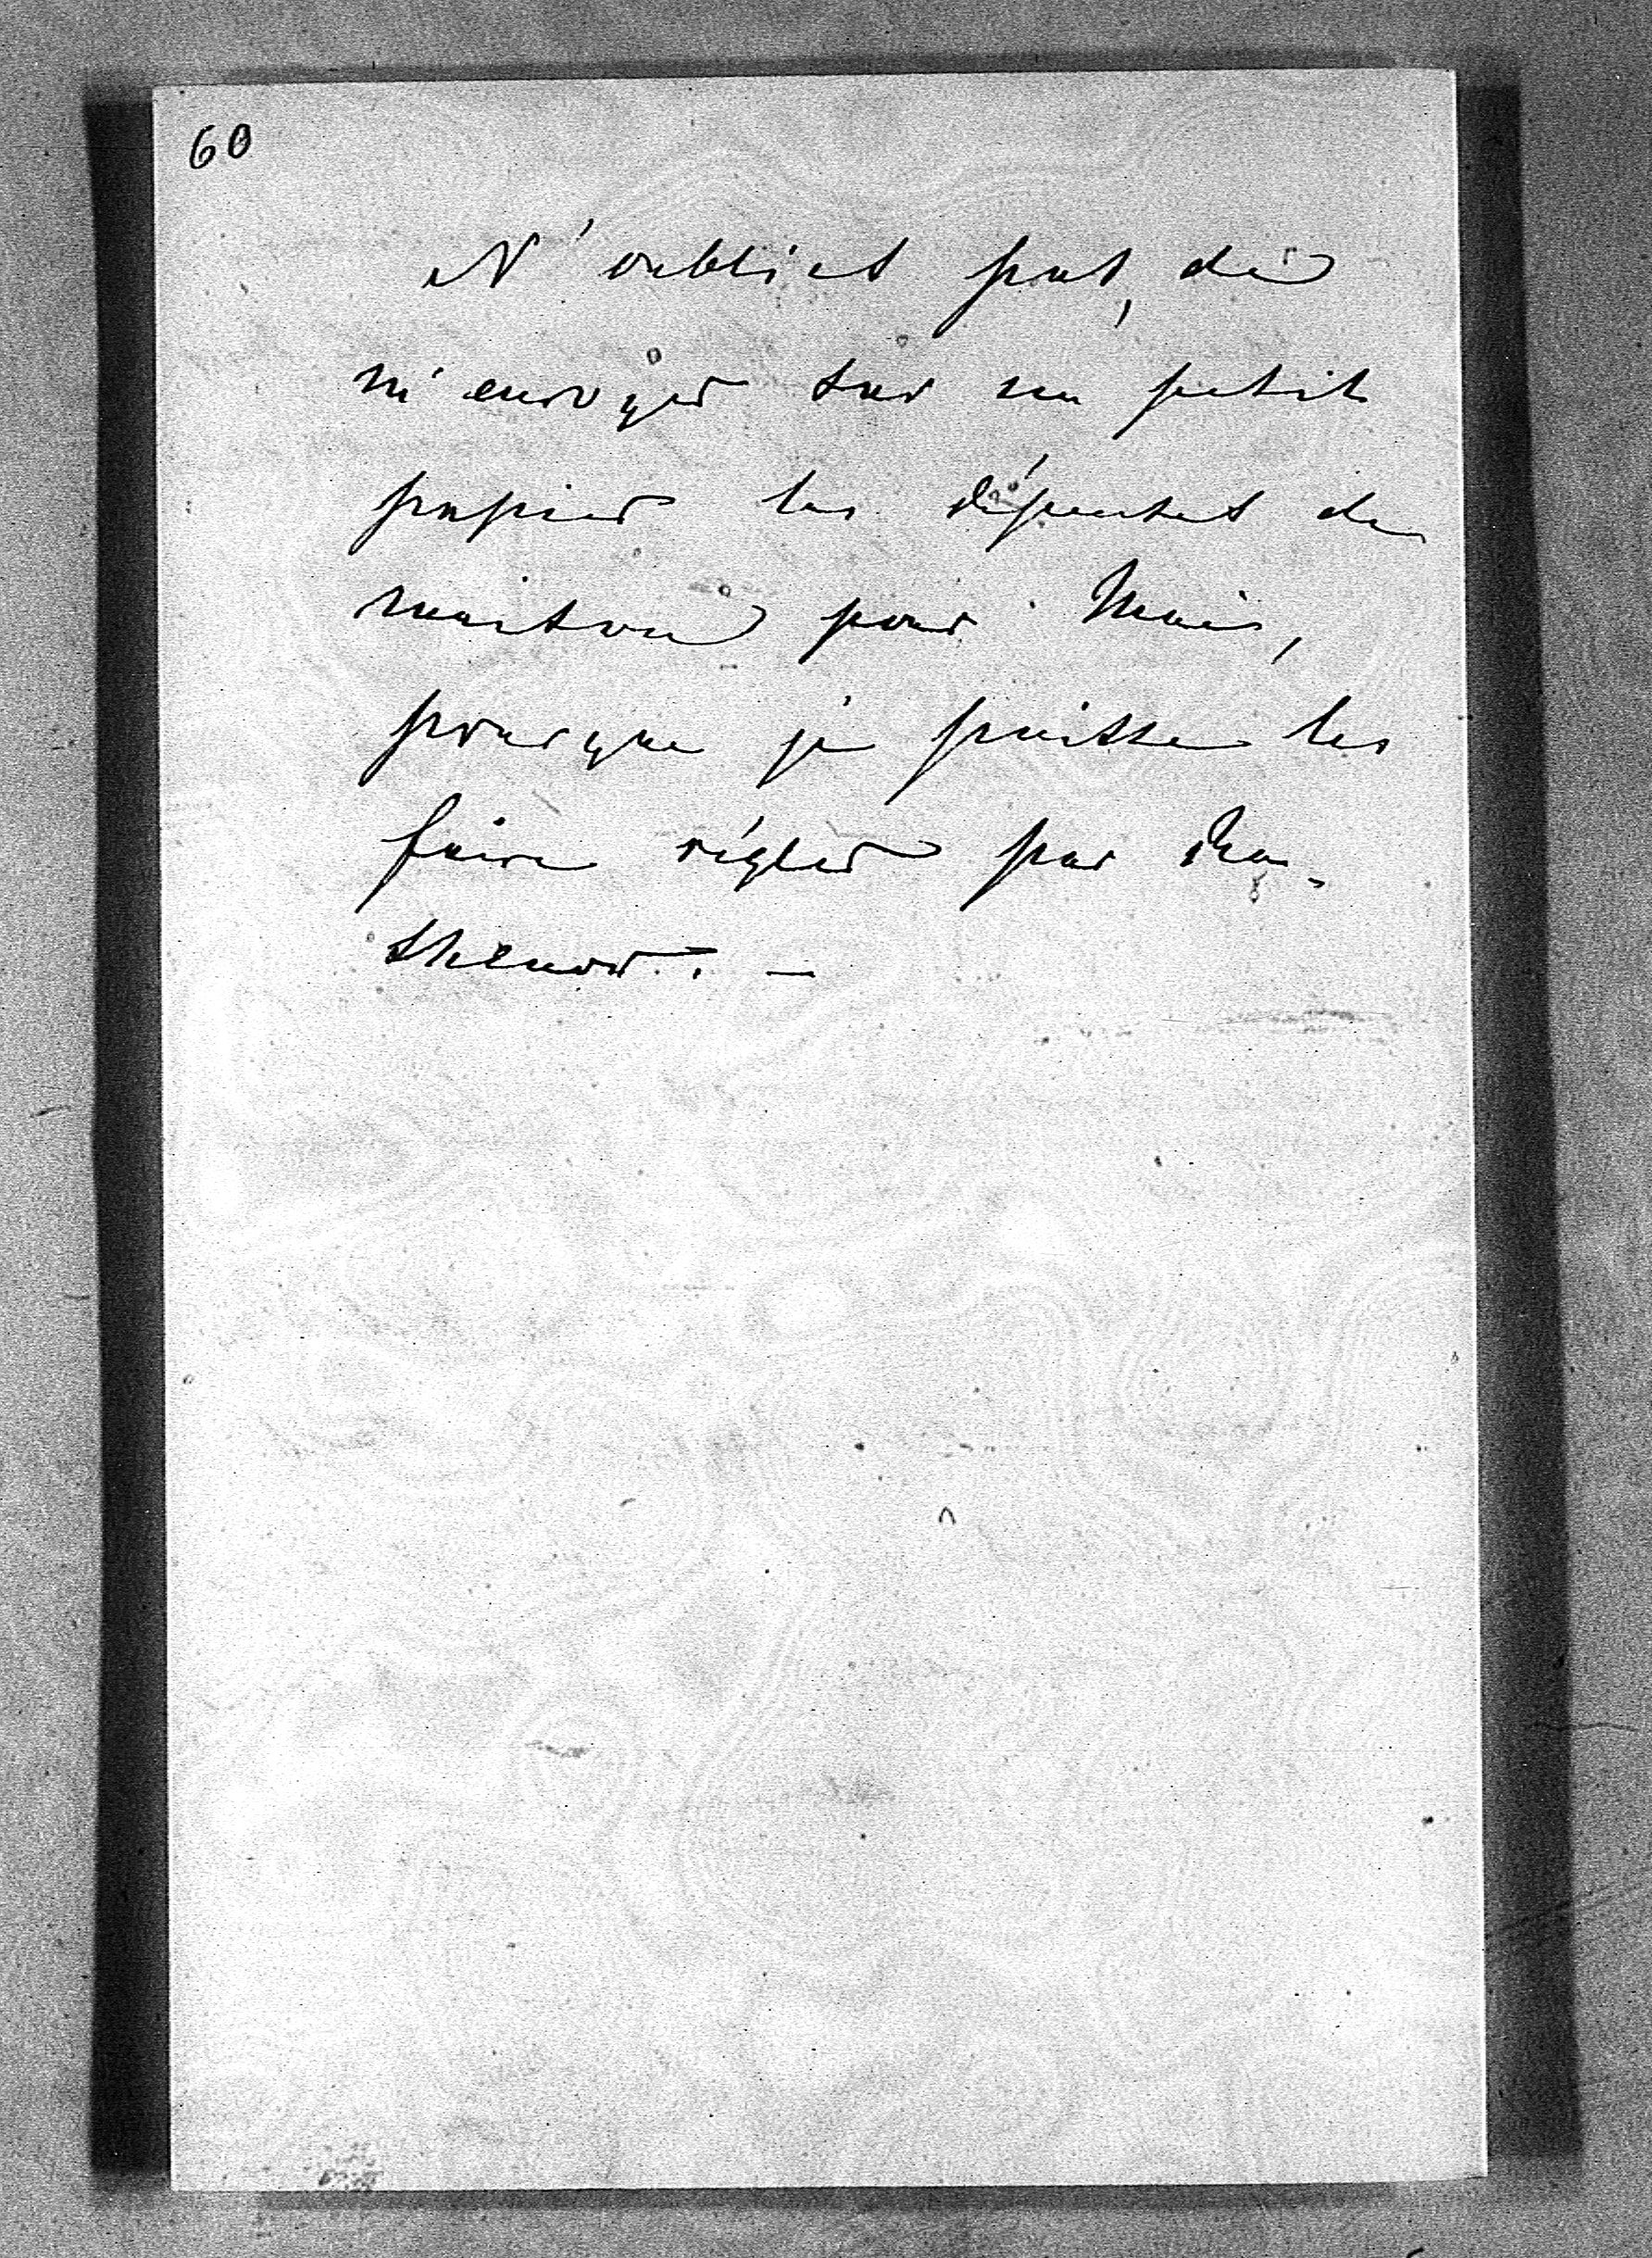 60
N'oublies pas, de
m'envoyer sur un petit
papier les dépenses de
maison pour Mai,
pourque je puisse les
faire régler par